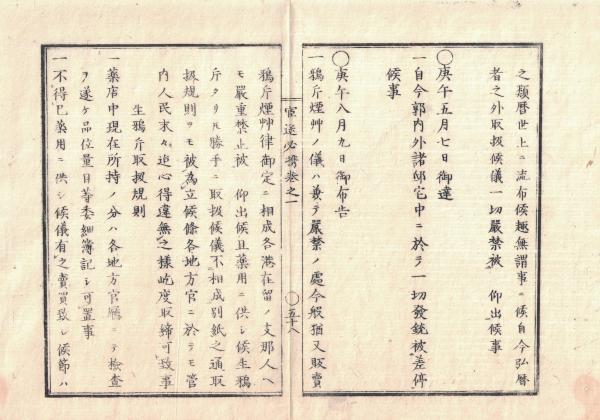 之類暦世上ニ流布候趣無謂事ニ候自今弘暦
者之外取扱候儀一切嚴禁被 仰出候事
〇庚午五月七日御達
一自今郭内外諸邸宅中ニ於テ一切發銃被差停
候事
〇庚午八月九日御布告
一鴉片煙艸ノ儀ハ兼テ嚴禁ノ處今般猶又販賣
官途必携巻之一
〇五十八
鴉片煙艸律御定ニ相成各港在留ノ支那人ヘ
モ嚴重禁止被 仰出候且藥用ニ供シ候生鴉
片タリ𪜈勝手ニ取扱候儀不相成別紙之通取
扱規則ヲモ被為立候條各地方官ニ於テモ管
内人民末々迄心得違無之樣屹度取締可致事
生鴉片取扱規則
一藥店中現在所持ノ分ハ各地方官廳ニテ檢査
ヲ遂ケ品位量目等委細簿記シ可置事
一不得已藥用ニ供シ候儀有之賣買致シ候節ハ